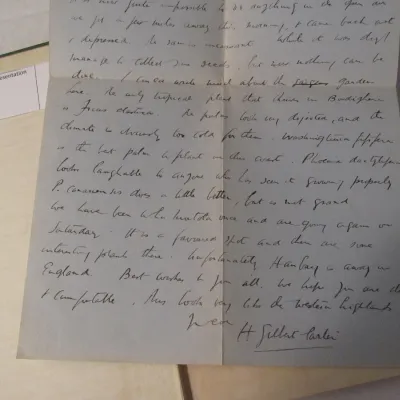 it is now quite impossible to do anything in the open air
we got a few miles away this morning, & came back wet
& depressed. The rain is incessant. While it was dry I
manage to collect some seeds, but now nothing can be
done. I can't write much about the gardens
here. The only tropical plant that thrives in
is Ficus elastica. The palms look very dejected, and the
climate is obviously too cold for them. Washingtonia filifera
is the best palm to plant on this coast. Phoenix dactylifera
looks laughable to anyone who has seen it growing properly
P. canariensis does a little better, but is not grand
We have been to La Mortola once and are going again on
Saturday. It is a favoured spot and there are some
interesting plants there. Unfortunately Hanbury is away in
England. Best wishes to you all. We hope you are dry
& comfortable. This looks very like the Western highlands
Yours ever
H Gilbert-Carter
resentation